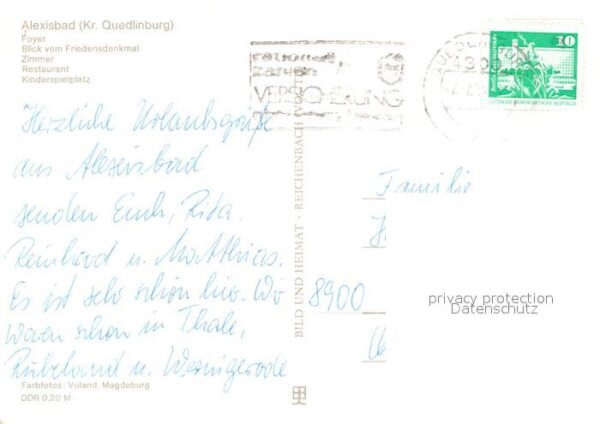 Alexisbad (Kr. Quedlinburg)
Foyer
Blick vom Friedensdenkmal
Zimmer
Restaurant
Kinderspielplatz
rationell
sparen
VERSICHERUNG
4300
10
Herzliche Urlaubsgrüße
aus Alexisbad
senden Euch, Rita
Reinhard u. Matthias.
Es ist sehr schön hier. Wir
waren schon in Thale,
Rübeland u. Wernigerode
BILD UND HEIMAT · REICHENBACH (VOGTL)
Familie
H.
8900
privacy protection
Datenschutz
Farbfotos: Voland, Magdeburg
DDR 0,20 M